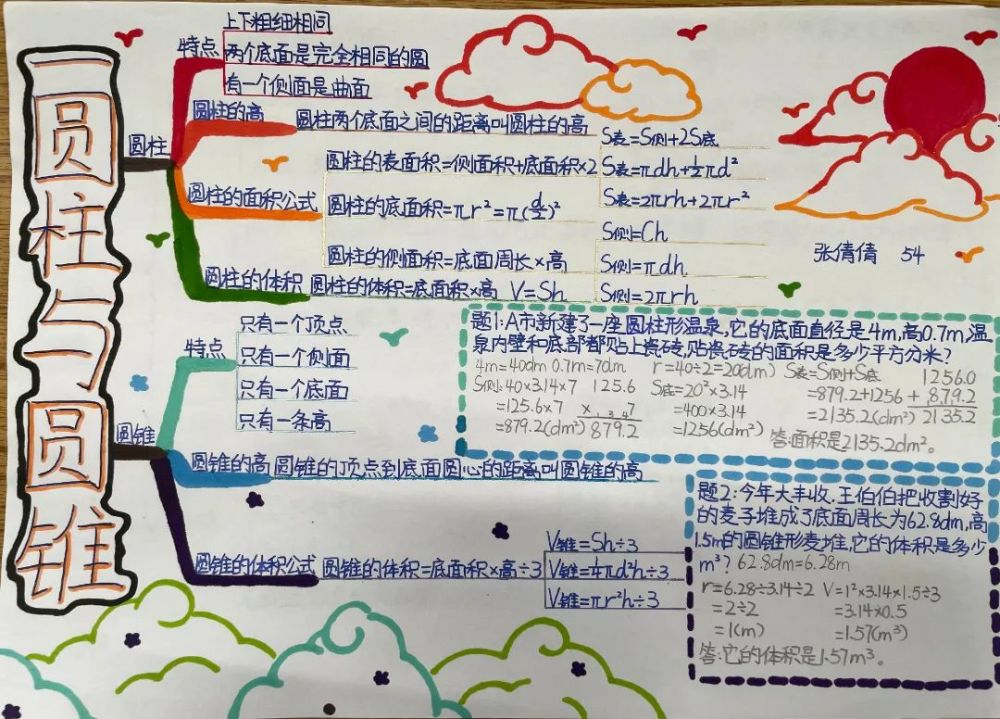 圆柱与圆锥
圆柱
特点
上下粗细相同
两个底面是完全相同的圆
有一个侧面是曲面
圆柱的高
圆柱两个底面之间的距离叫圆柱的高
圆柱的面积公式
圆柱的表面积=侧面积+底面积×2
S表=S侧+2S底
S表=πdh+½πd²
S表=2πrh+2πr²
圆柱的底面积=πr²=π(d/2)²
圆柱的侧面积=底面周长×高
S侧=Ch
S侧=πdh
S侧=2πrh
圆柱的体积
圆柱的体积=底面积×高 V=Sh
张倩倩 54
圆锥
特点
只有一个顶点
只有一个侧面
只有一个底面
只有一条高
圆锥的高
圆锥的顶点到底面圆心的距离叫圆锥的高
圆锥的体积公式
圆锥的体积=底面积×高÷3
V锥=Sh÷3
V锥=¼πd²h÷3
V锥=πr²h÷3
题1:A市新建了一座圆柱形温泉,它的底面直径是4m,高0.7m,温
泉内壁和底部都贴上瓷砖,贴瓷砖的面积是多少平方分米?
4m=40dm 0.7m=7dm
S侧:40×3.14×7
=125.6×7
=879.2(dm²)
125.6
× 7
879.2
r=40÷2=20(dm)
S底=20²×3.14
=400×3.14
=1256(dm²)
S表=S侧+S底
=879.2+1256
=2135.2(dm²)
1256.0
+ 879.2
2135.2
答:面积是2135.2dm²。
题2:今年大丰收.王伯伯把收割好
的麦子堆成了底面周长为62.8dm,高
1.5m的圆锥形麦堆,它的体积是多少
m³? 62.8dm=6.28m
r=6.28÷3.14÷2
=2÷2
=1(m)
V=1²×3.14×1.5÷3
=3.14×0.5
=1.57(m³)
答:它的体积是1.57m³。